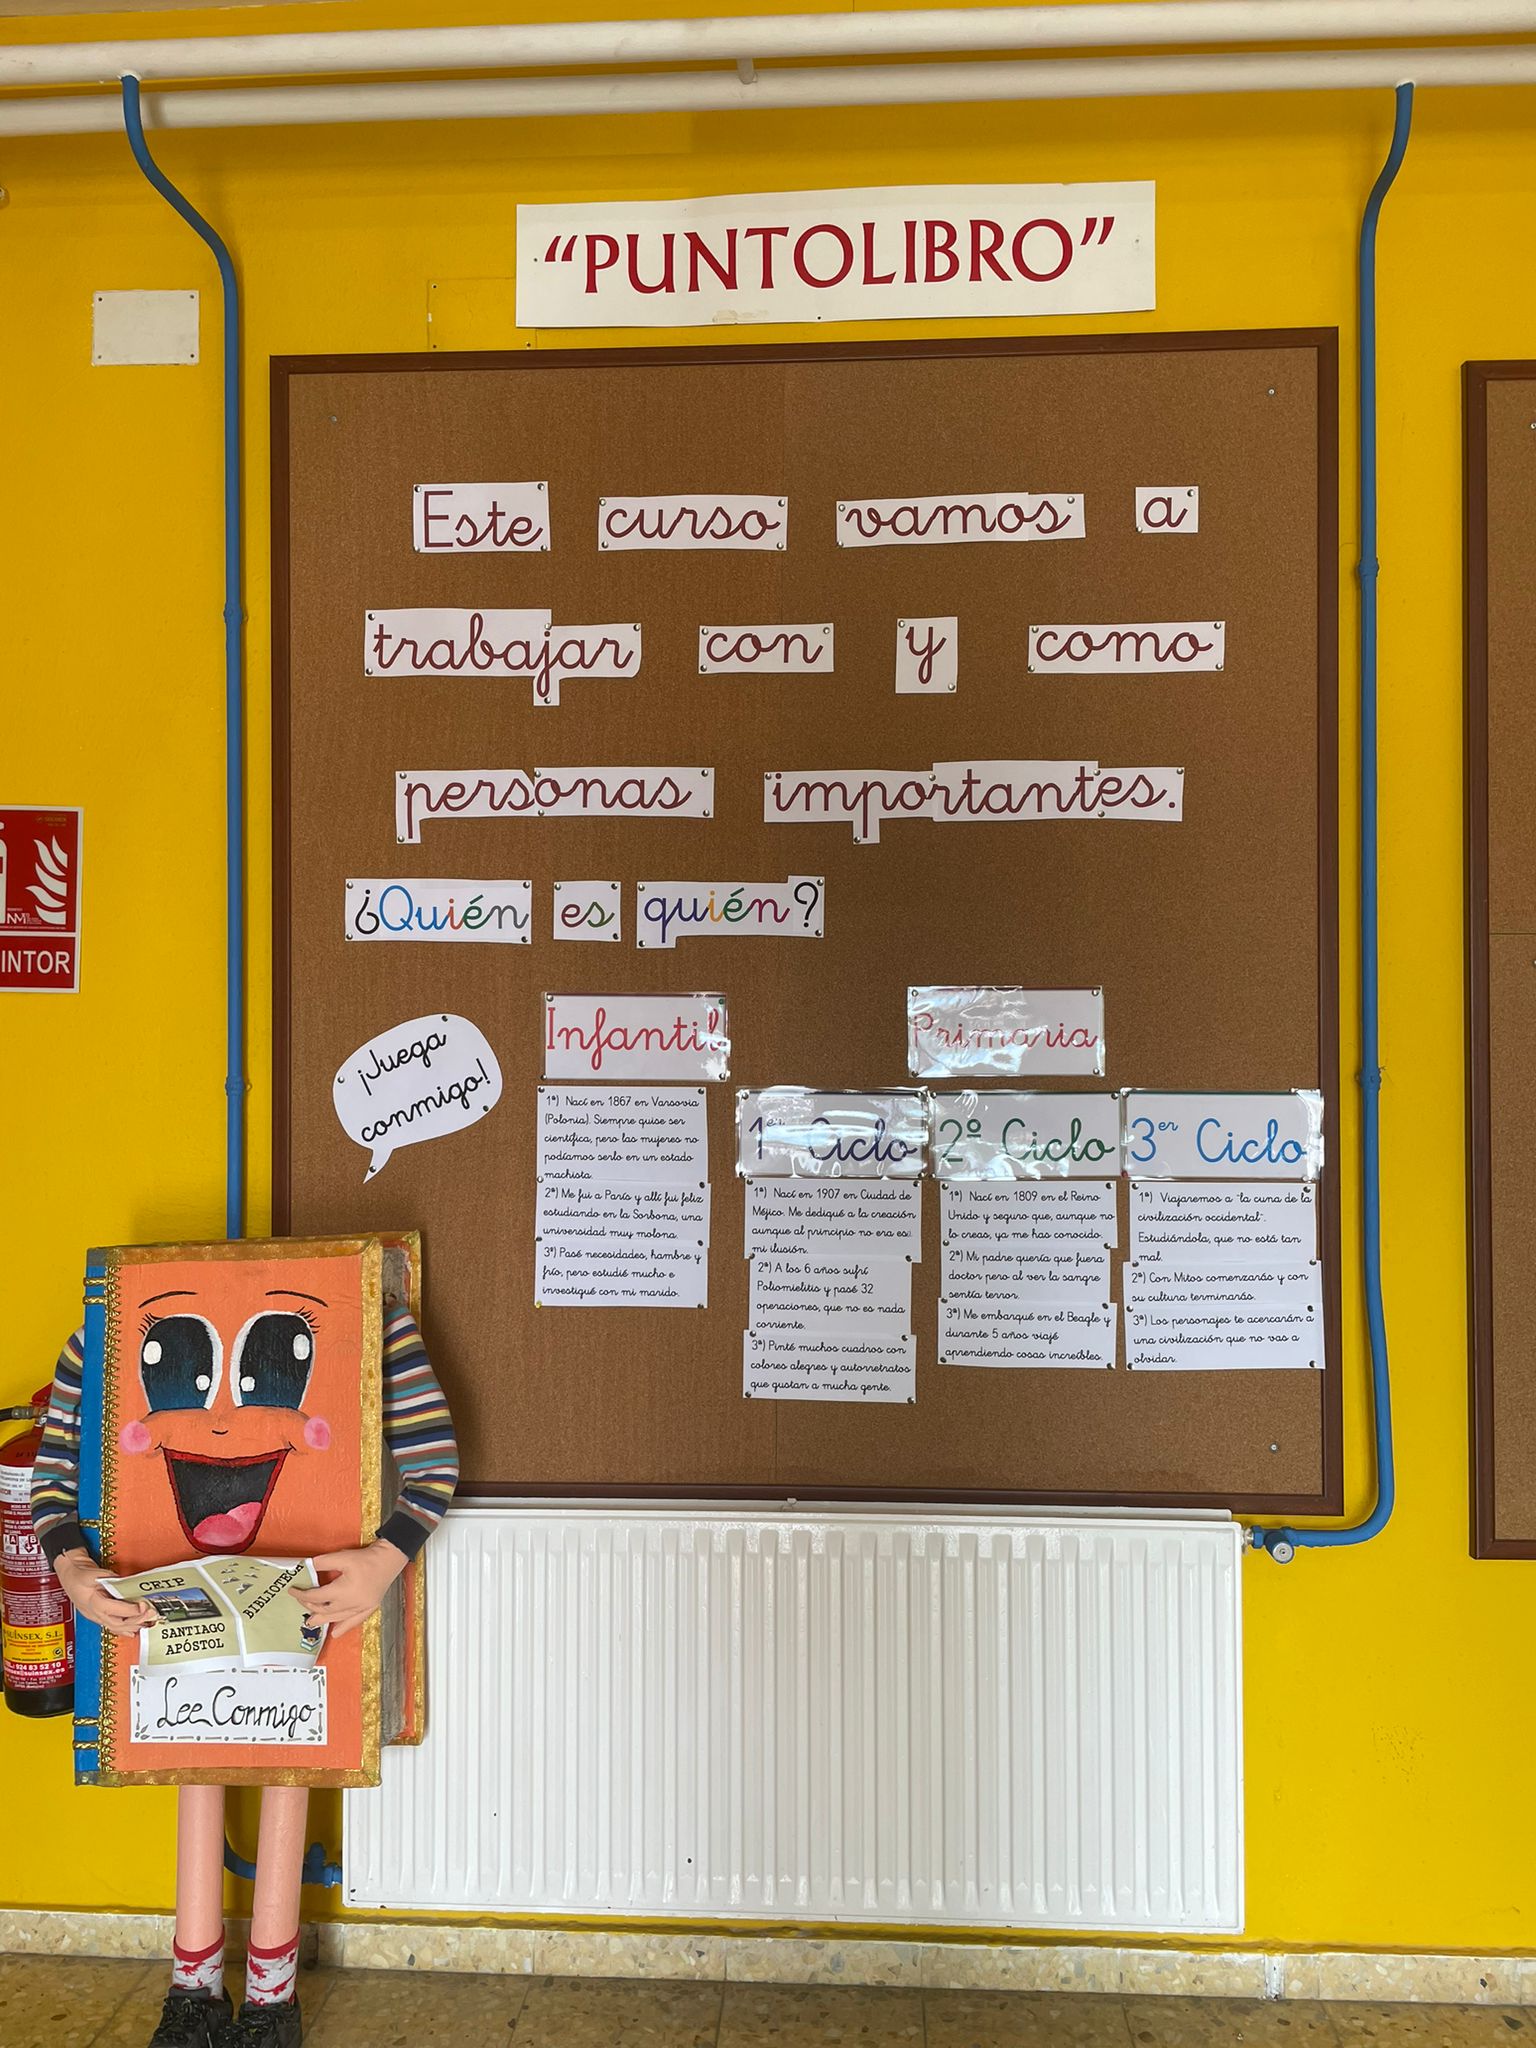 “PUNTOLIBRO”
Este curso vamos a
trabajar con y como
personas importantes.
¿Quién es quién?
¡Juega
conmigo!
Infantil
1ª) Nací en 1867 en Varsovia
(Polonia). Siempre quise ser
científica, pero las mujeres no
podíamos serlo en un estado
machista.
2ª) Me fui a París y allí fui feliz
estudiando en la Sorbona, una
universidad muy molona.
3ª) Pasé necesidades, hambre y
frío, pero estudié mucho e
investigué con mi marido.
Primaria
1er Ciclo
1ª) Nací en 1907 en Ciudad de
Méjico. Me dediqué a la creación
aunque al principio no era esa
mi ilusión.
2ª) A los 6 años sufrí
Poliomielitis y pasé 32
operaciones, que no es nada
corriente.
3ª) Pinté muchos cuadros con
colores alegres y autorretratos
que gustan a mucha gente.
2º Ciclo
1ª) Nací en 1809 en el Reino
Unido y seguro que, aunque no
lo creas, ya me has conocido.
2ª) Mi padre quería que fuera
doctor pero al ver la sangre
sentía terror.
3ª) Me embarqué en el Beagle y
durante 5 años viajé
aprendiendo cosas increíbles.
3er Ciclo
1ª) Viajaremos a “la cuna de la
civilización occidental”.
Estudiándola, que no está tan
mal.
2ª) Con Mitos comenzarás y con
su cultura terminarás.
3ª) Los personajes te acercarán a
una civilización que no vas a
olvidar.
INTOR
CEIP
SANTIAGO
APÓSTOL
BIBLIOTECA
Lee Conmigo
SUINSEX, S.L.
924 83 52 10